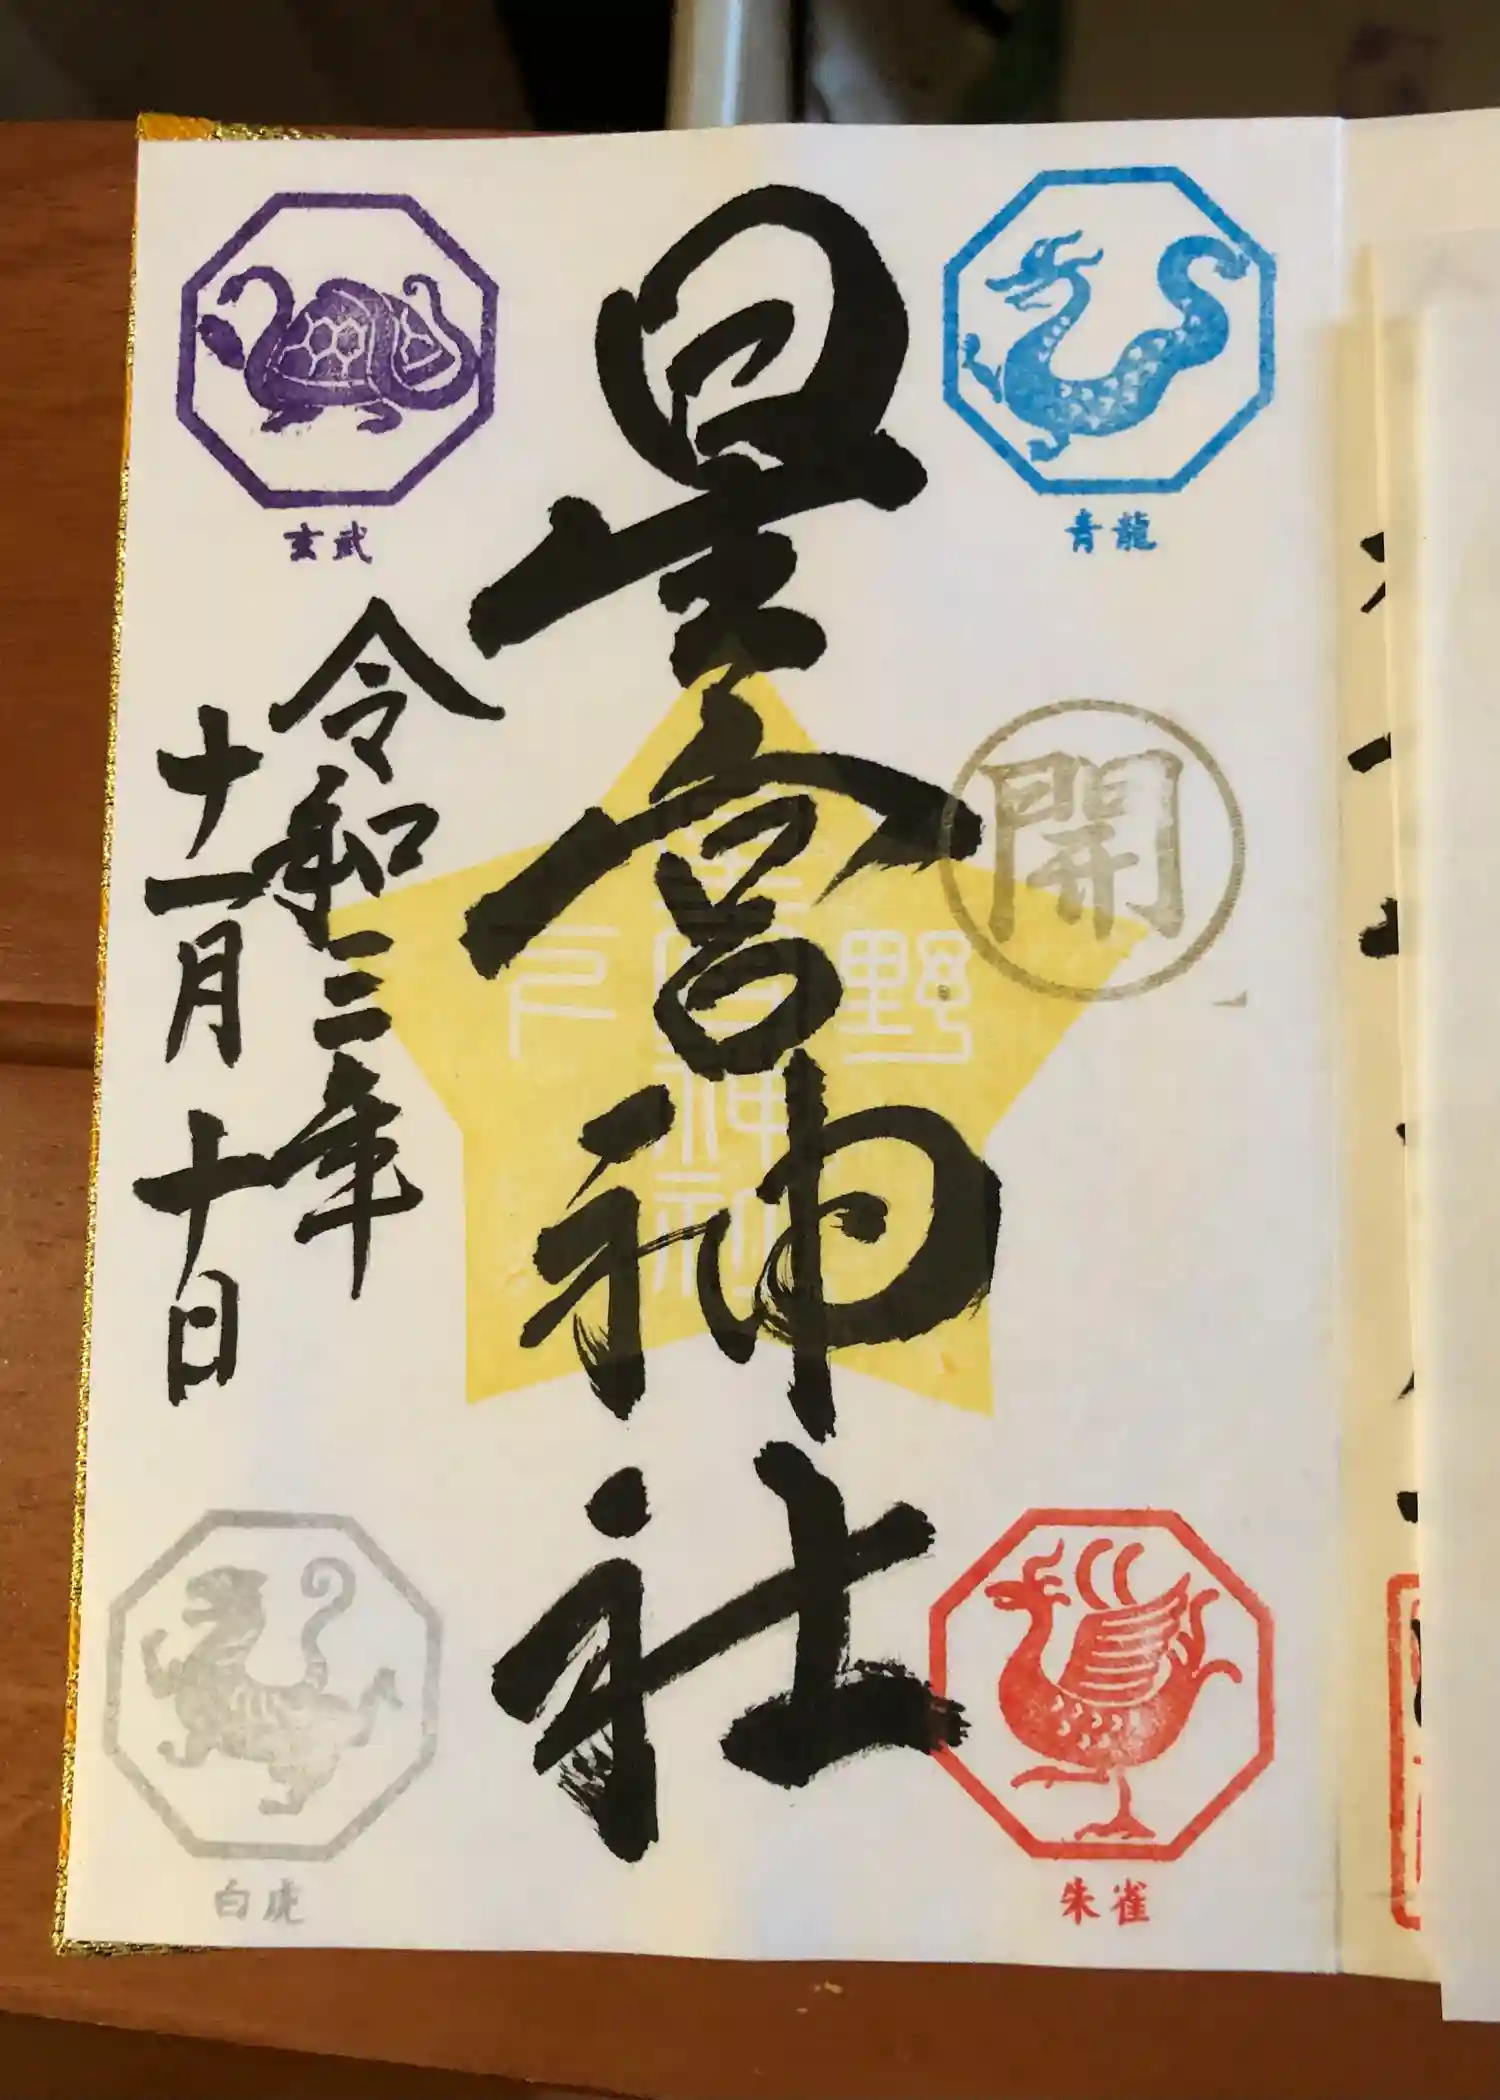 青龍
開
朱雀
星宮神社
野
神社
玄武
令和三年
十一月十日
白虎